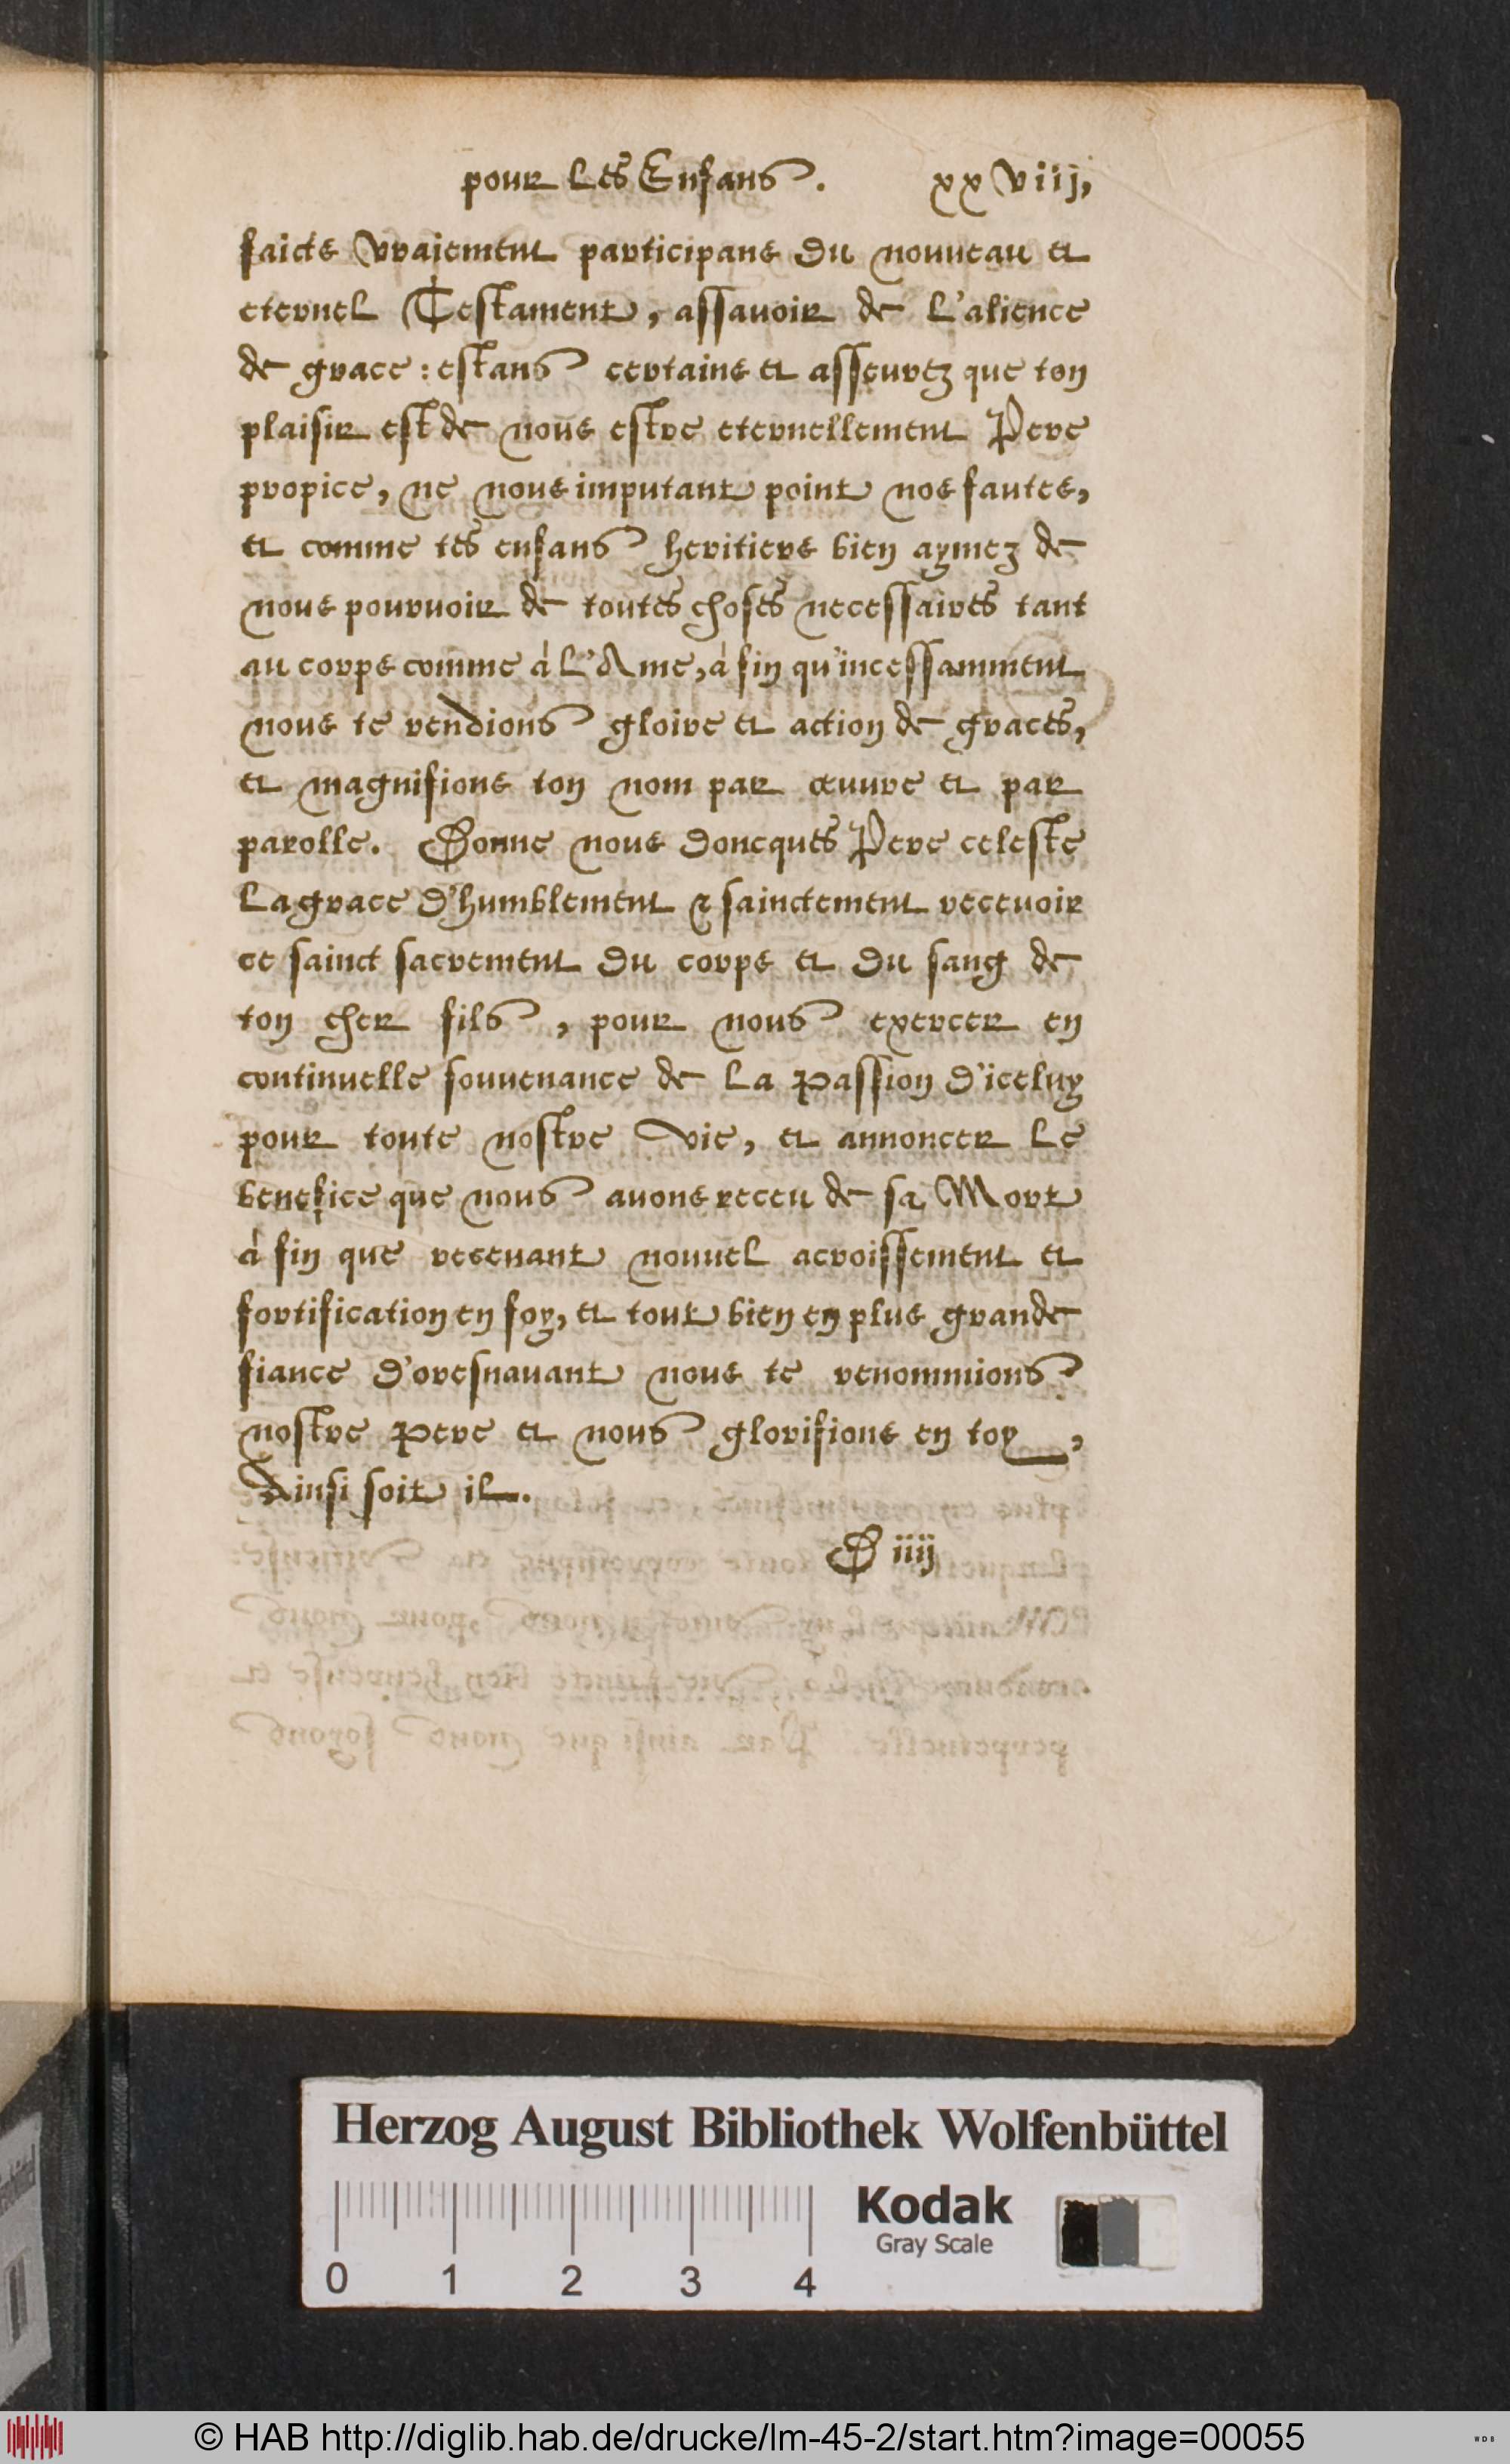 pour les Enfans. xxviij,
faicts vraiement participans du nouueau et
eternel Testament, assauoir de l'alience
de grace : estans certains et asseurez que ton
plaisir est de nous estre eternellement Pere
propice, ne nous imputant point nos fautes,
et comme tes enfans heritiers bien aymez de
nous pouruoir de toutes choses necessaires tant
au corps comme à l'Ame, à fin qu'incessamment
nous te rendions gloire et action de graces,
et magnifions ton nom par œuure et par
parolle. Donne nous doncques Pere celeste
la grace d'humblement & sainctement receuoir
ce sainct sacrement du corps et du sang de
ton cher fils, pour nous exercer en
continuelle souuenance de la Passion d'iceluy
pour toute nostre vie, et annoncer le
benefice que nous auons receu de sa Mort
à fin que receuant nouuel acroissement et
fortification en foy, et tout bien en plus grande
fiance d'oresnauant nous te renommions
nostre Pere et nous glorifions en toy,
Ainsi soit il.
D iiij
Herzog August Bibliothek Wolfenbüttel
Kodak
Gray Scale
0 1 2 3 4
© HAB http://diglib.hab.de/drucke/lm-45-2/start.htm?image=00055